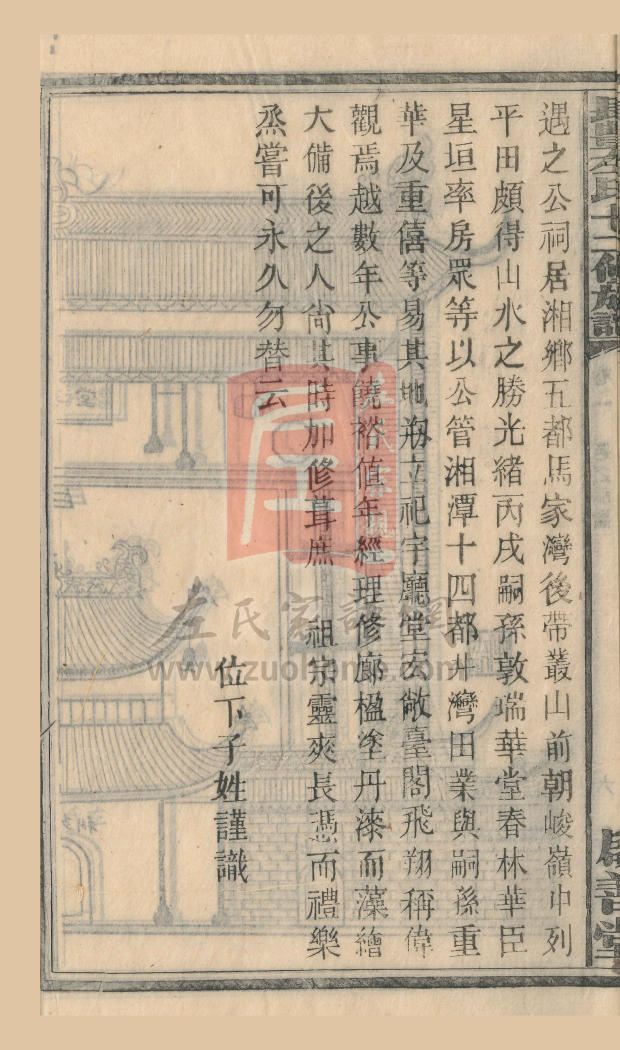 遇之公祠居湘鄉五都馬家灣後帶叢山前朝峻嶺中列
平田頗得山水之勝光緒丙戌嗣孫敦瑞華堂春林華臣
星垣率房眾等以公管湘潭十四都井灣田業與嗣孫重
華及重僖等易其地剏立祀宇廳堂宏敞臺閣飛翔稱偉
觀焉越數年公事饒裕值年經理修廊楹塗丹漆而藻繪
大備後之人尙其時加修葺庶　祖宗靈爽長憑而禮樂
烝嘗可永久勿替云
位下子姓謹識
左氏七修族譜
卷一
六
善堂
左氏家譜網
www.zuohome.com